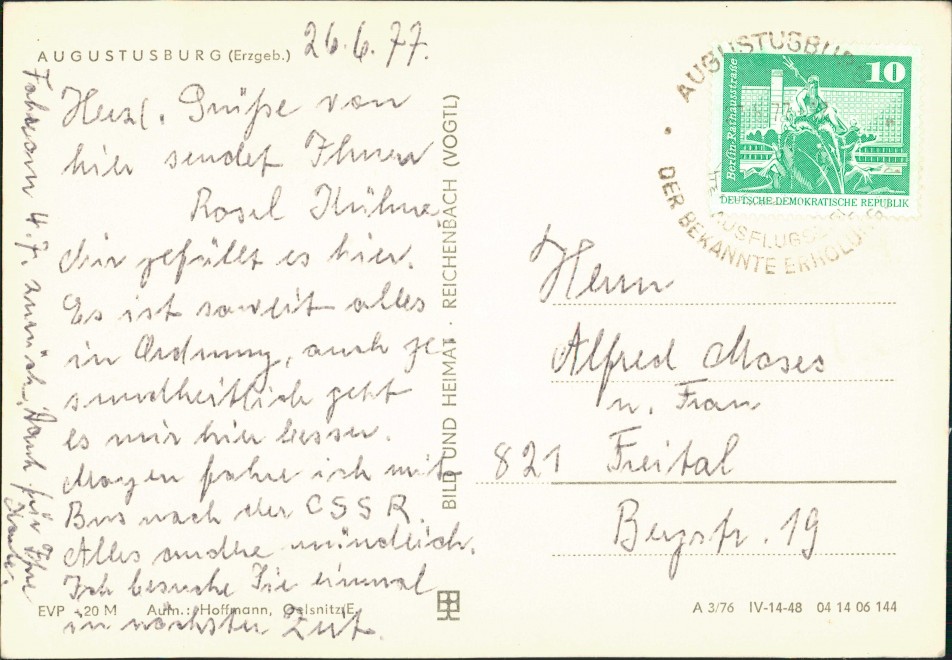 AUGUSTUSBURG (Erzgeb.)
26.6.77.
Herzl. Grüße von
hier sendet Ihnen
Rosel Kühne,
gefällt es hier.
Es ist soweit alles
in Ordnung, auch ge-
sundheitlich geht
es mir hier besser.
Morgen fahre ich mit
Bus nach der CSSR.
Alles andre mündlich.
Ich besuche Sie einmal
in nächster Zeit.
4.7. zurück, Dank für Ihre
Karte.
BILD UND HEIMAT · REICHENBACH (VOGTL)
EVP -,20 M Aufn.: Hoffmann, Oelsnitz/E.
AUGUSTUSBURG
DER BEKANNTE ERHOLUNGS
AUSFLUGS
10
Berlin-Rathausstraße
DEUTSCHE DEMOKRATISCHE REPUBLIK
Herrn
Alfred Moses
u. Frau
821 Freital
Bergstr. 19
A 3/76 IV-14-48 04 14 06 144